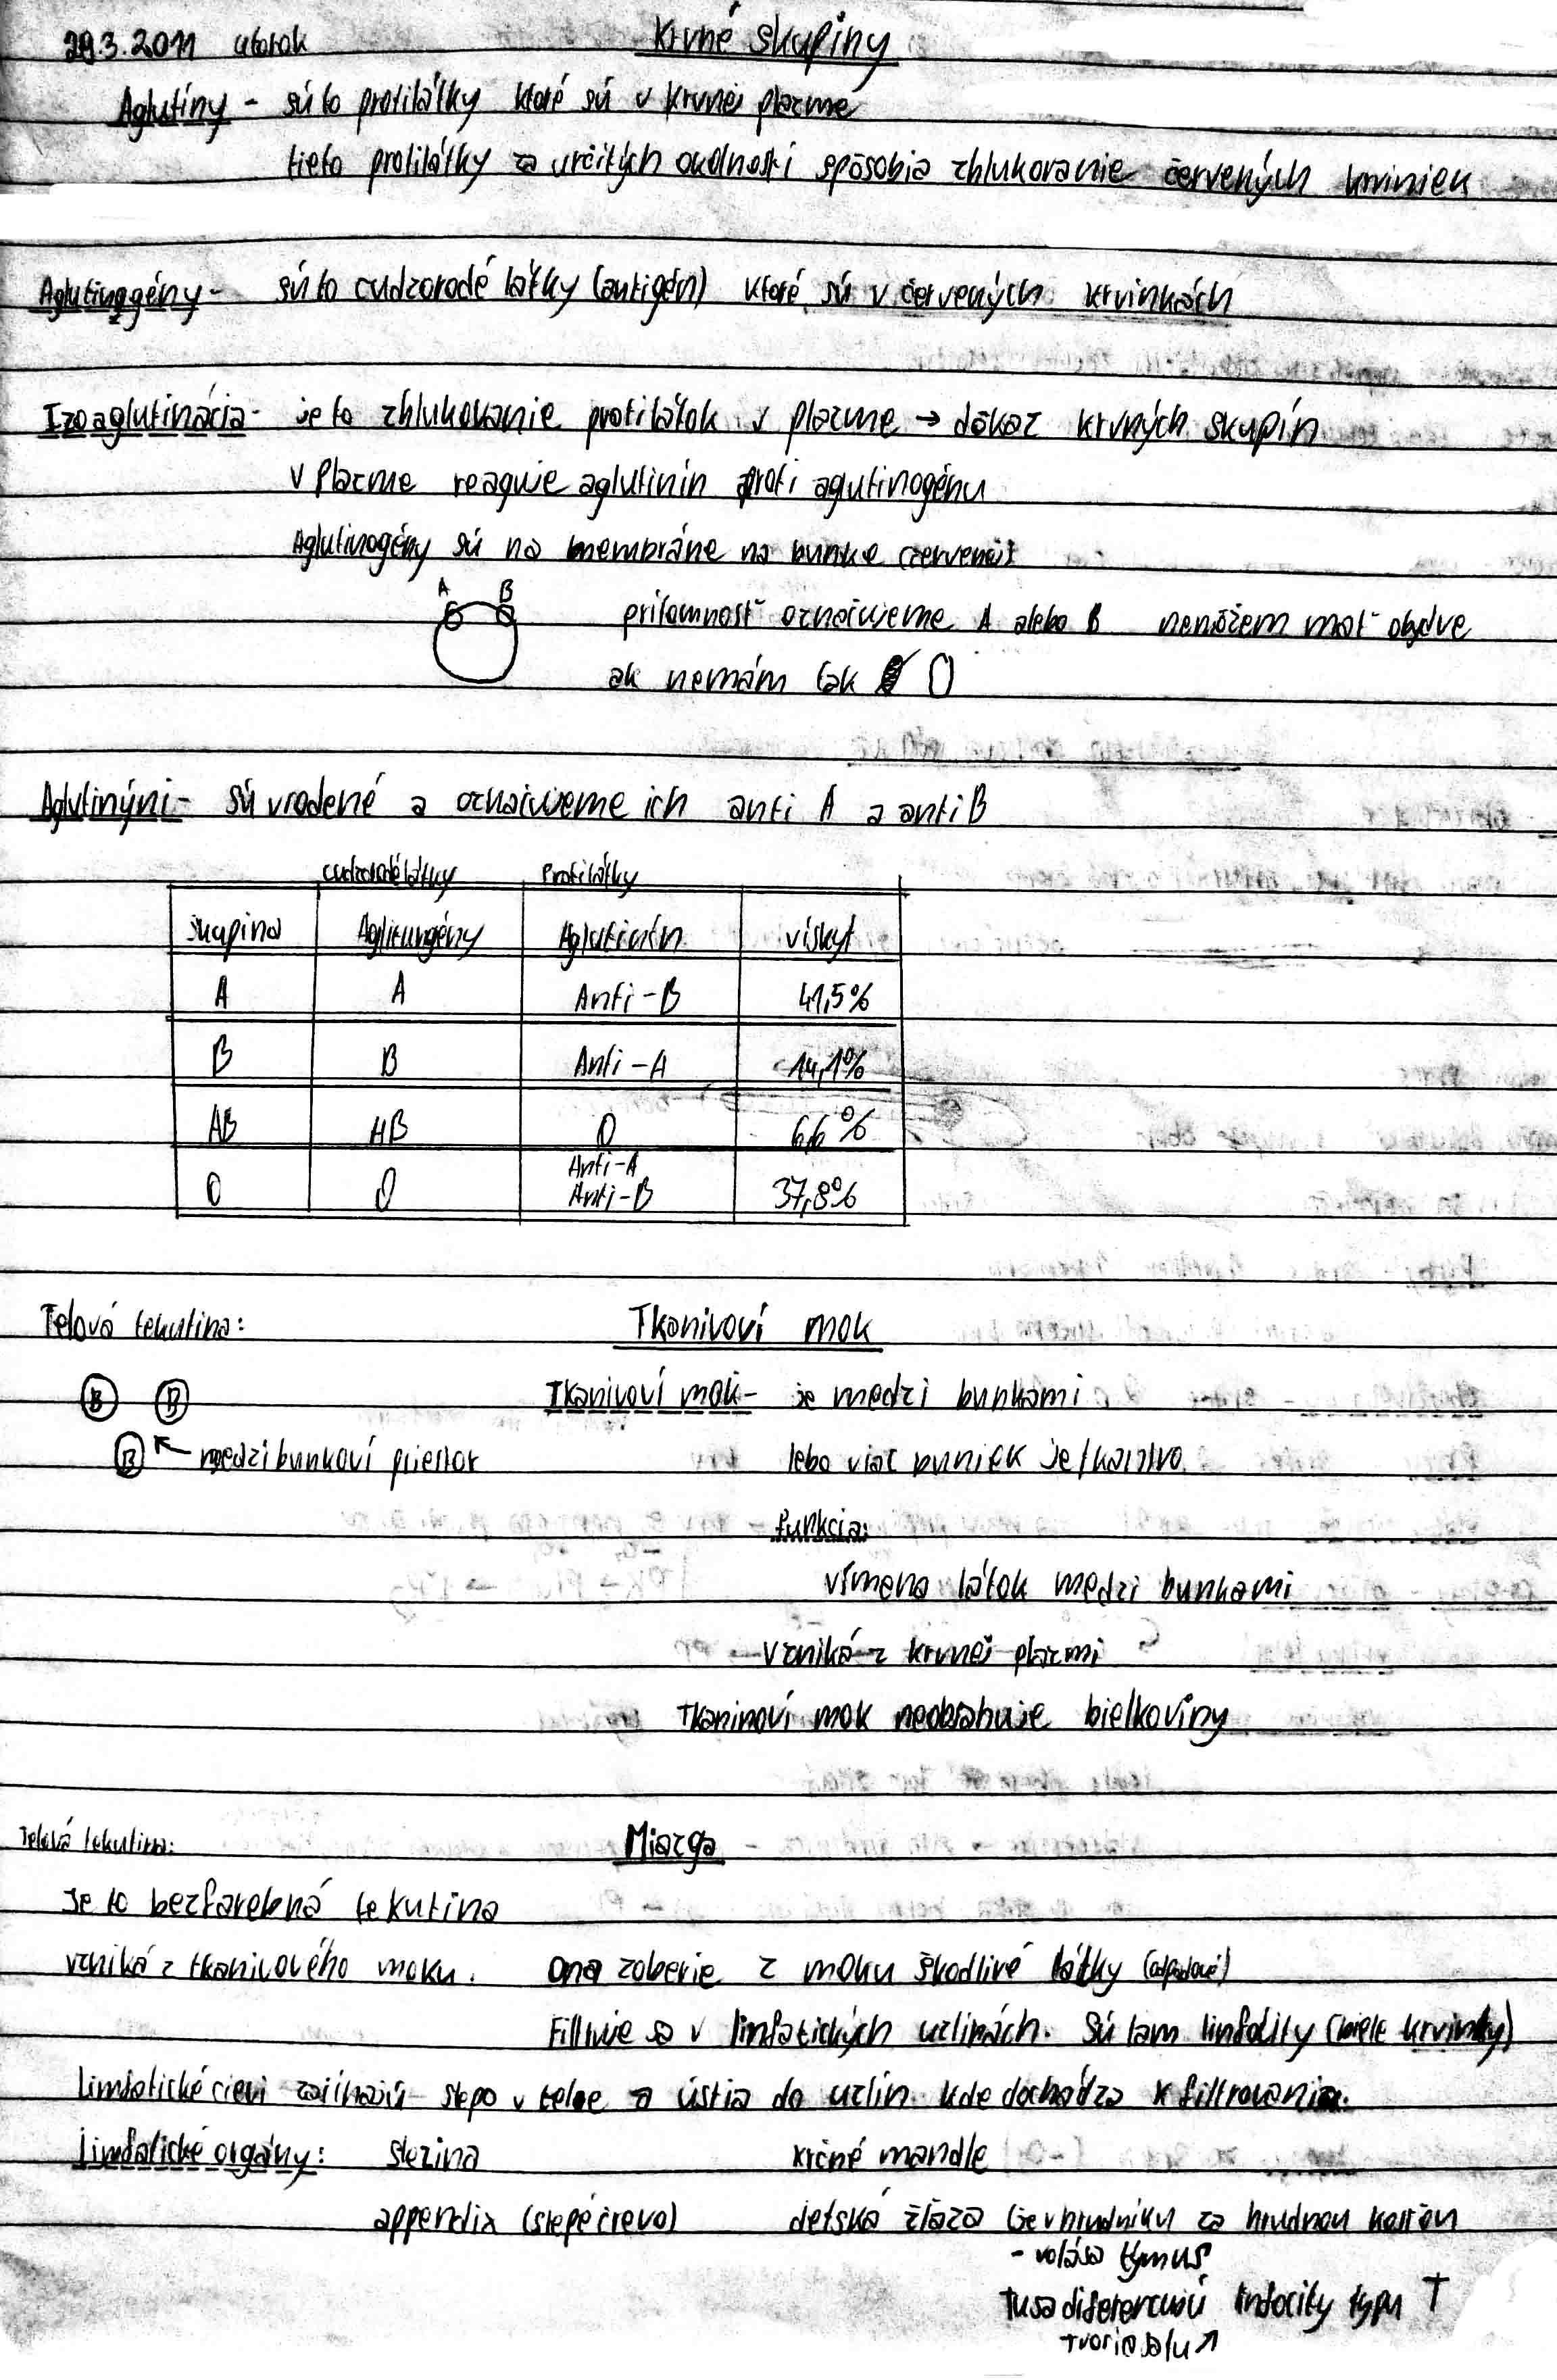 29.3.2011 utorok Krvné skupiny
Aglutíny - sú to protilátky ktoré sú v krvnej plazme
tieto protilátky za určitých okolností spôsobia zhlukovanie červených krviniek
Aglutinogény - sú to cudzorodé látky (antigén) ktoré sú v červených krvinkách
Izoaglutinácia - je to zhlukovanie protilátok v plazme → dôkaz krvných skupín
v plazme reaguje aglutinín proti agutinogénu
Aglutinogény sú na membráne na bunke červenej
A B
prítomnosť označujeme A alebo B nemôžem mať obydve
ak nemám tak 0
Aglutinýni - sú vrodené a označujeme ich anti A a anti B
cudzorodé látky Protilátky
skupina Aglitungény Aglutinín vískyt
A A Anti-B 41,5%
B B Anti-A 14,1%
AB AB 0 6,6%
0 0 Anti-A Anti-B 37,8%
Telová tekutina: Tkanivoví mok
B B Tkanivoví mok - je medzi bunkami
B ← medzibunkoví priestor lebo viac buniek je tkanivo.
funkcia:
vímena látok medzi bunkami
Vzniká z krvnej plazmi
Tkaninoví mok neobsahuje bielkovíny
Telová tekutina: Miazga
Je to bezfarebná tekutina
vzniká z tkanivového moku. Ona zoberie z moku škodlivé látky (odpadové)
Filtruje sa v linfatických uzlinách. Sú tam linfocity (biele krvinky)
Limfatické cievi začínajú slepo v telee a ústia do uzlín kde dochádza k filtrovaniu.
Limfatické orgány: slezina krčné mandle
appendix (slepé črevo) detská žlaza (je v hrudníku za hrudnou kosťou
- volá sa tymus
Tu sa diferencujú linfocity typu T
tvoria sa tu ↗